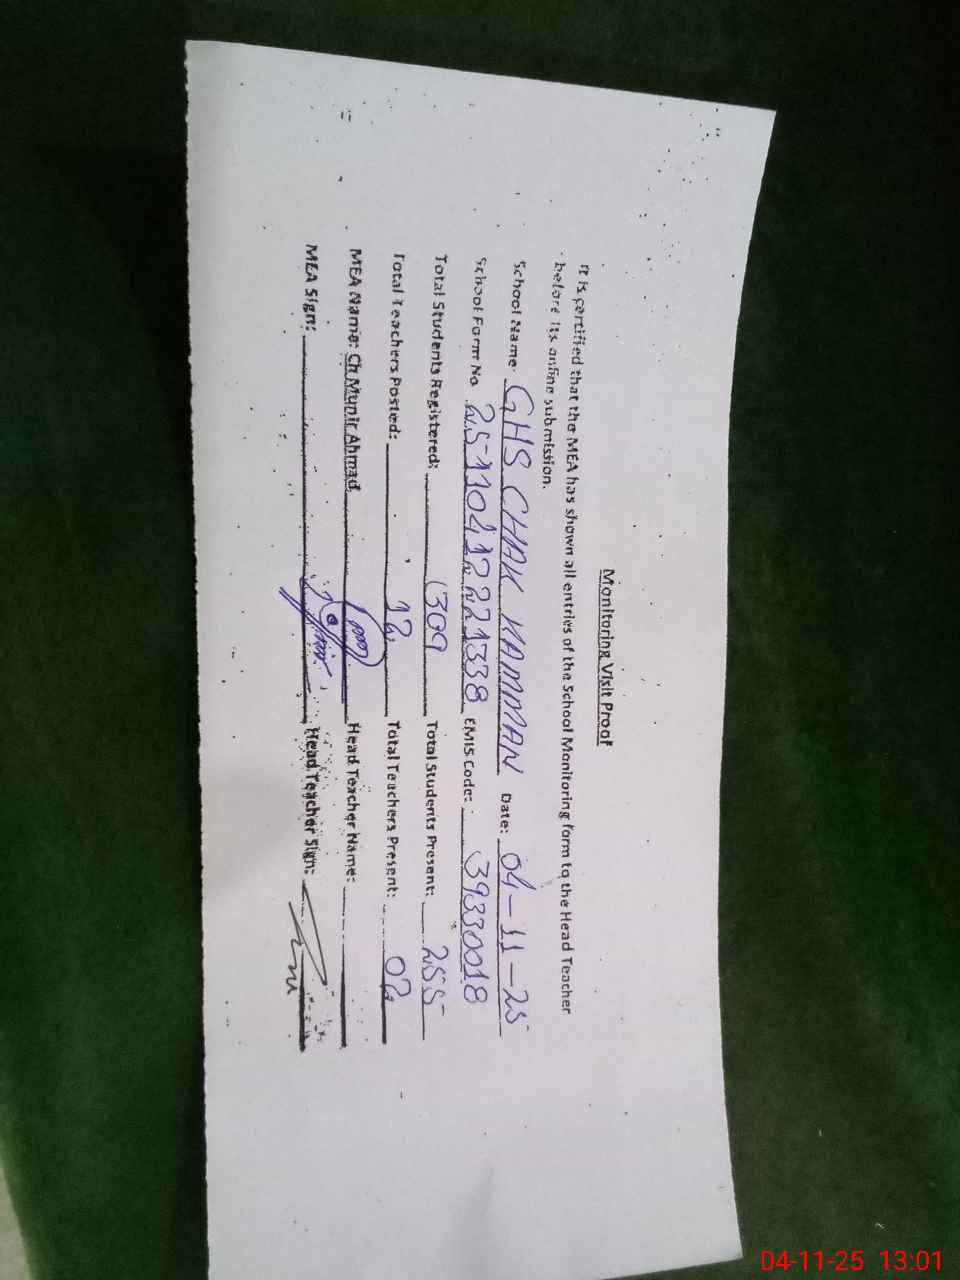 Monitoring Visit Proof
It is certified that the MEA has shown all entries of the School Monitoring form to the Head Teacher
before its online submission.
School Name: GHS CHAK KAMMAN Date: 04-11-25
School Form No. 25110412221338 EMIS Code: 39330018
Total Students Registered: 309 Total Students Present: 255
Total Teachers Posted: 12 Total Teachers Present: 02
MEA Name: Ch Munir Ahmad Head Teacher Name:
MEA Sign: Head Teacher Sign:
04-11-25 13:01